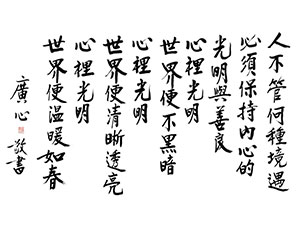 人不管何種境遇
必須保持內心的
光明與善良
心裡光明
世界便不黑暗
心裡光明
世界便清晰透亮
心裡光明
世界便溫暖如春
廣心敬書